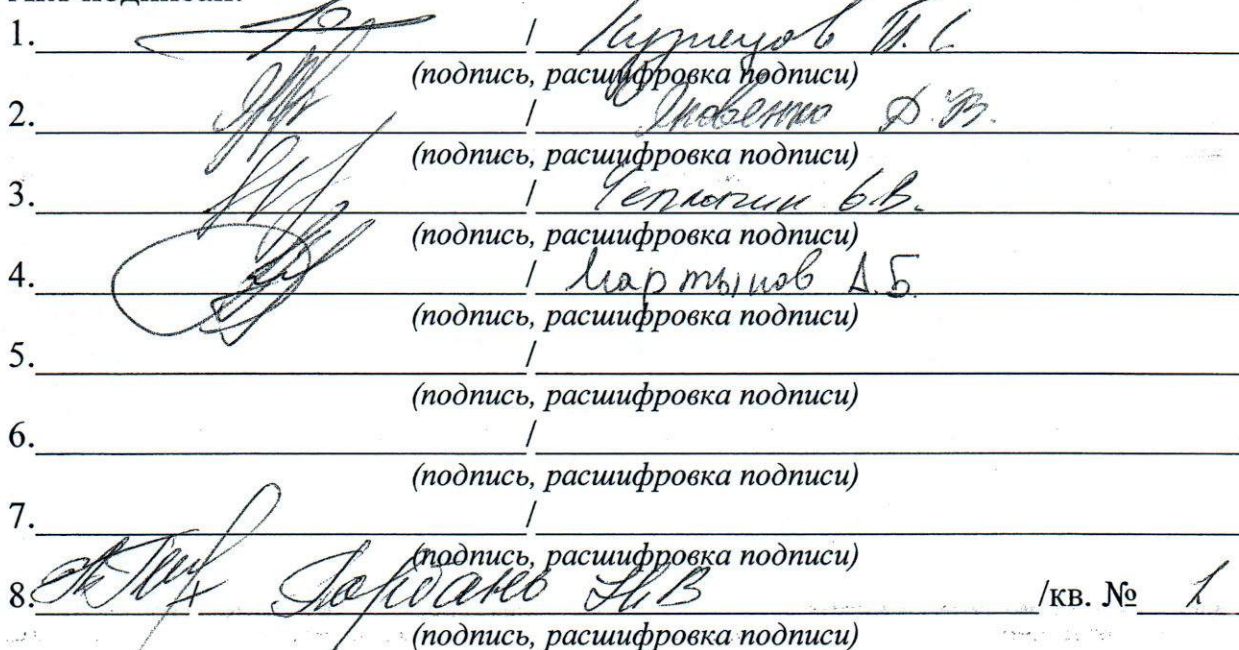 1. / Кузнецов П. С.
(подпись, расшифровка подписи)
2. / Яковенко Д. В.
(подпись, расшифровка подписи)
3. / Чеплагин Б.В.
(подпись, расшифровка подписи)
4. / Мартынов А.Б.
(подпись, расшифровка подписи)
5. /
(подпись, расшифровка подписи)
6. /
(подпись, расшифровка подписи)
7. /
(подпись, расшифровка подписи)
8. /кв. № 1
(подпись, расшифровка подписи)